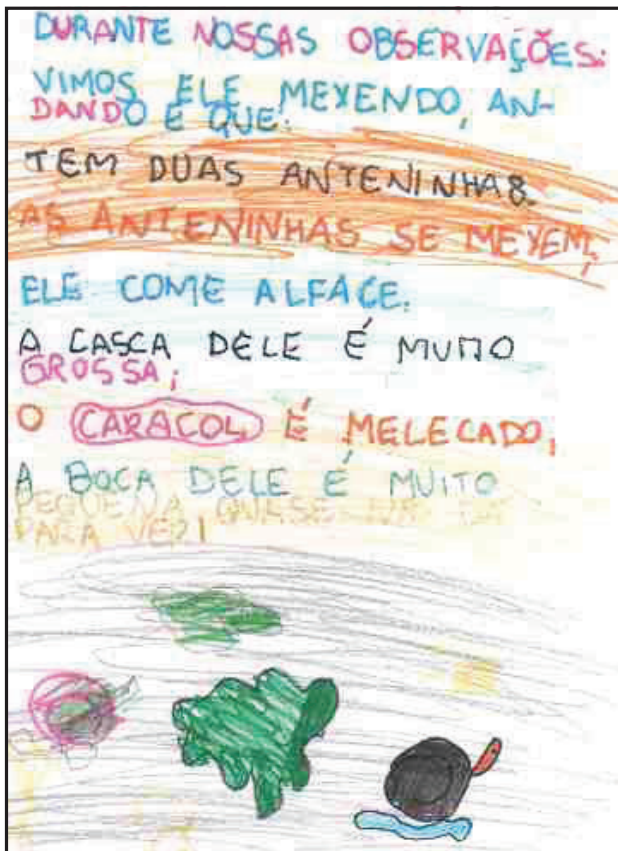 DURANTE NOSSAS OBSERVAÇÕES:
VIMOS ELE MEXENDO, AN-
DANDO E QUE:
TEM DUAS ANTENINHAS.
AS ANTENINHAS SE MEXEM;
ELE COME ALFACE.
A CASCA DELE É MUITO
GROSSA;
O CARACOL É MELECADO,
A BOCA DELE É MUITO
PEQUENA QUASE
PARA VER!